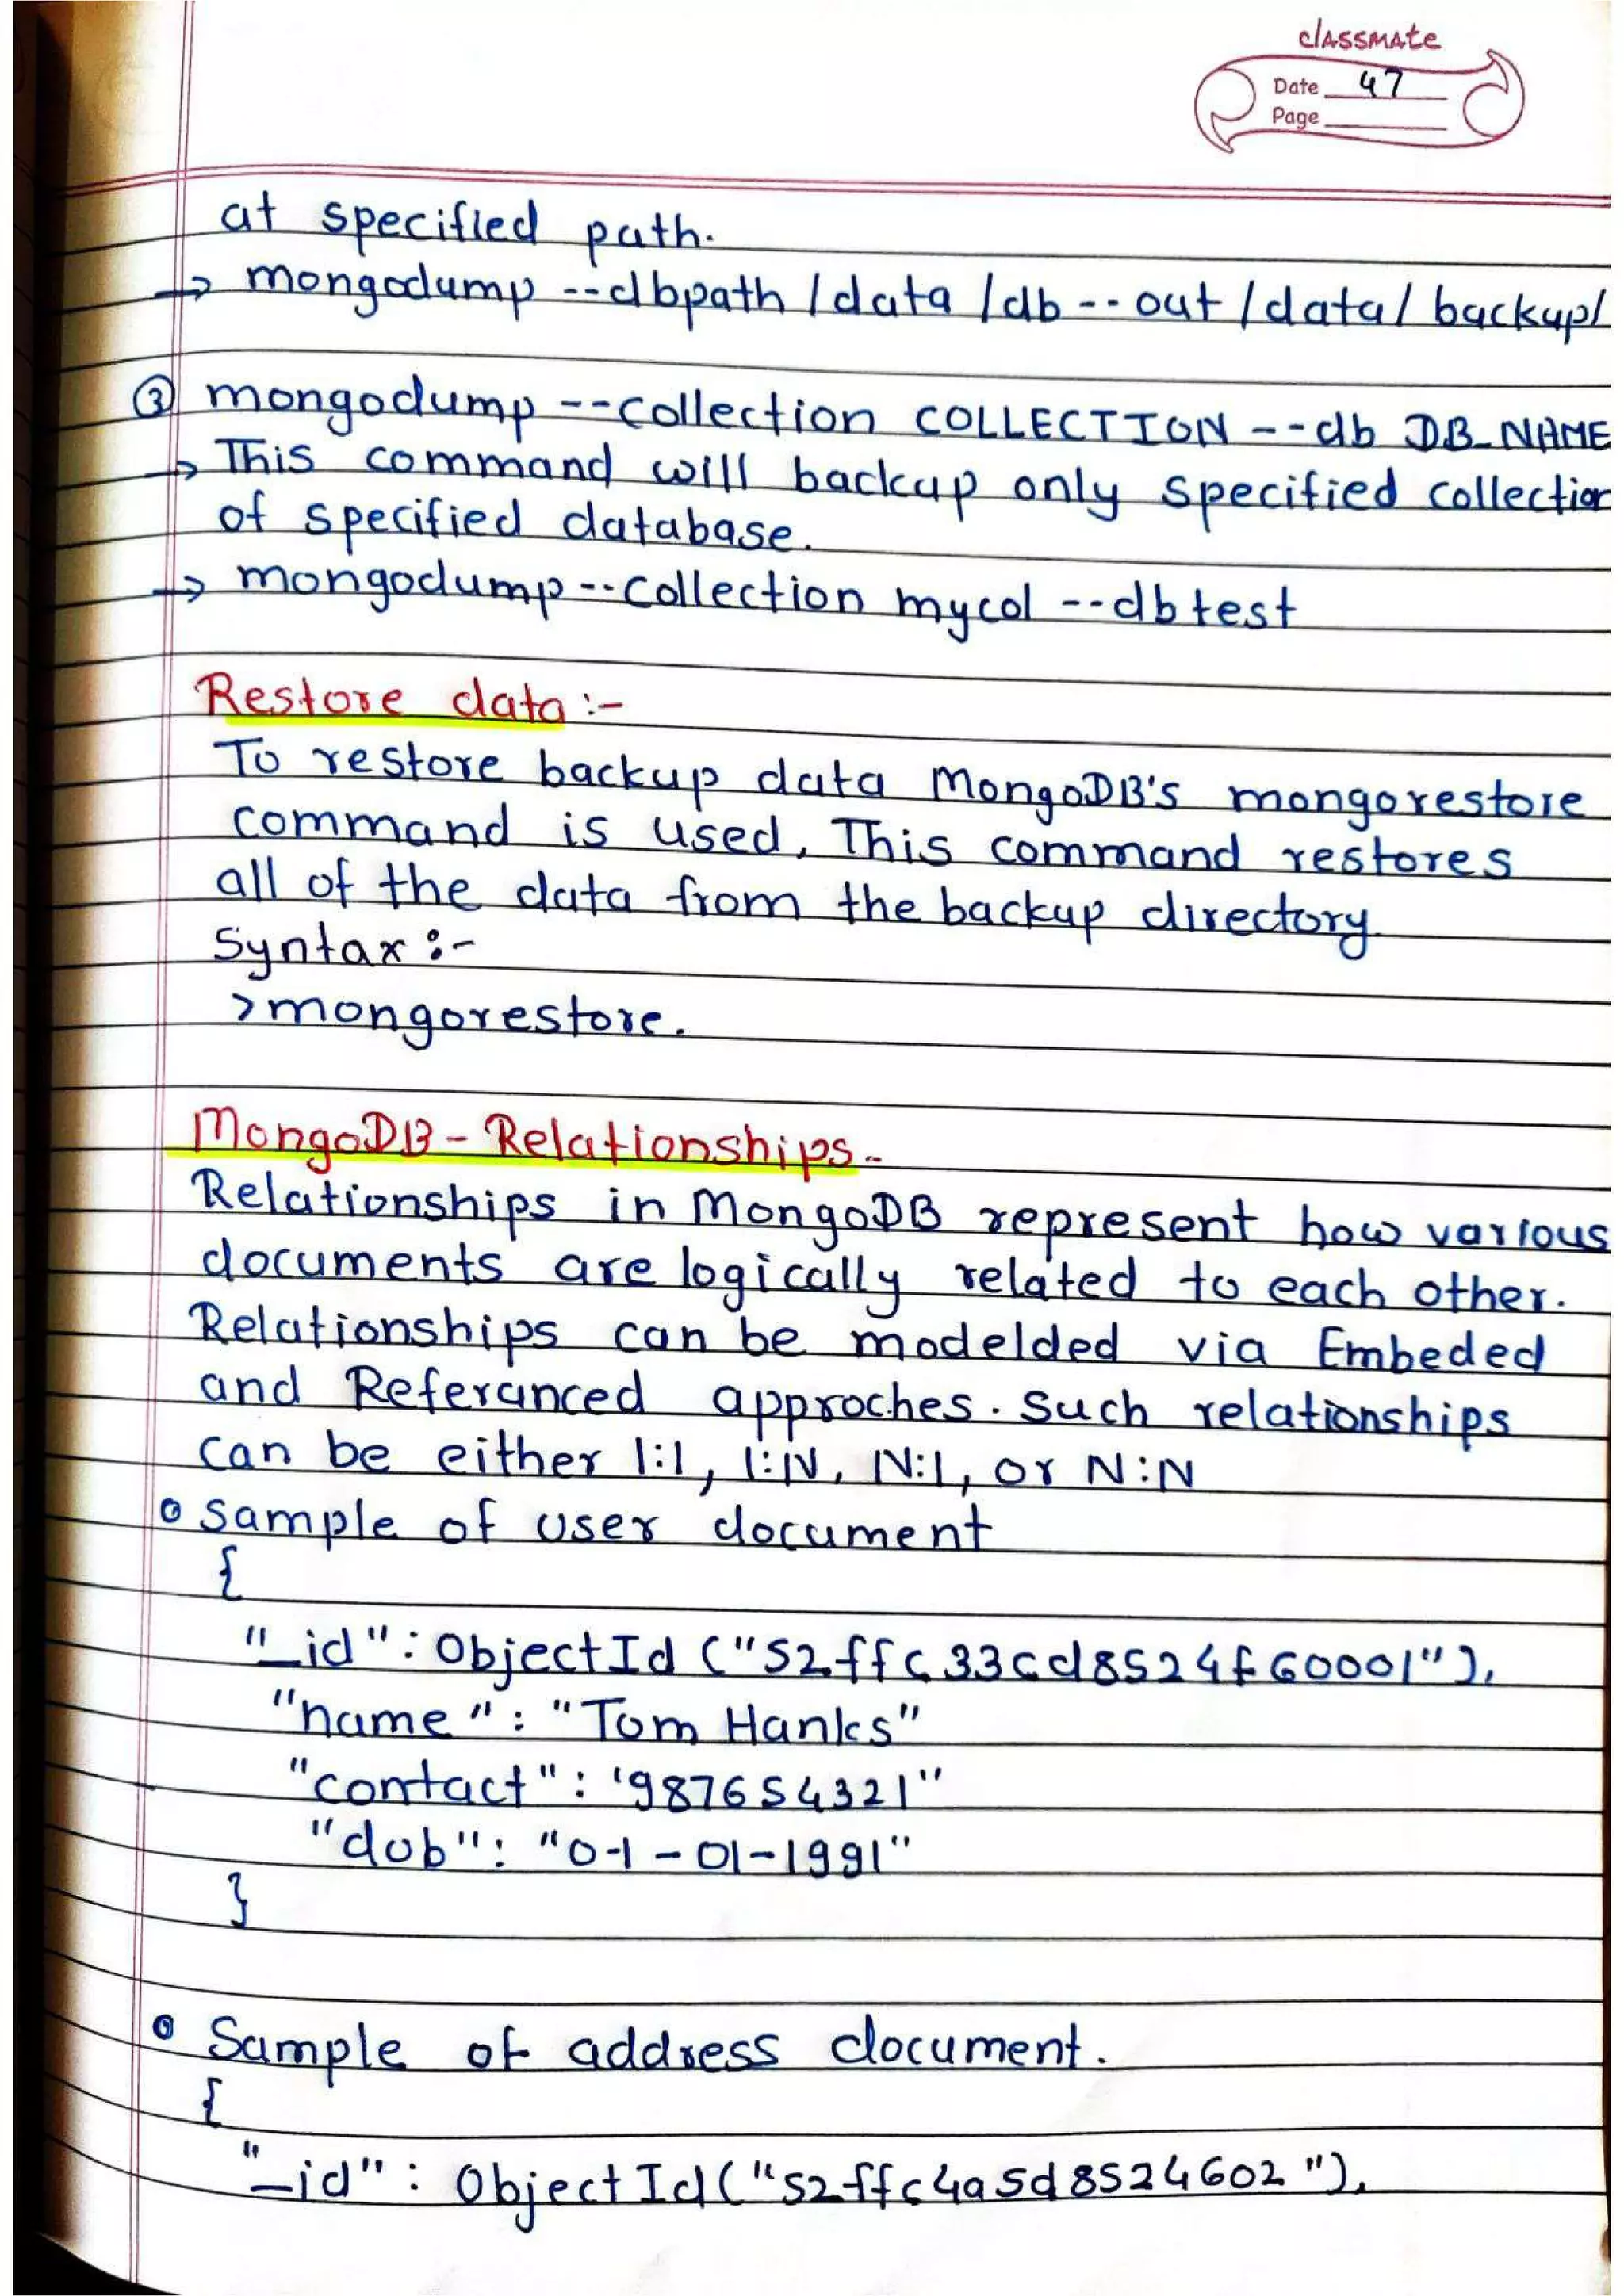 classmate
Date 47
Page
at specified path.
→ mongodump --dbpath /data /db -- out /data/ backup/
③ mongodump --collection COLLECTION --db DB_NAME
→ This command will backup only specified collection
of specified database.
→ mongodump --collection mycol --db test
Restore data :-
To restore backup data MongoDB's mongorestore
command is used, This command restores
all of the data from the backup directory.
Syntax :-
>mongorestore.
MongoDB - Relationships -
Relationships in MongoDB represent how various
documents are logically related to each other.
Relationships can be modelded via Embeded
and Referanced approches. Such relationships
can be either 1:1, 1:N, N:1, or N:N
• Sample of user document
{
"_id" : ObjectId ("52ffc33cd8524f60001"),
"name" : "Tom Hanks"
"contact" : '987654321"
"dob" : "0-1 - 01-1991"
}
• Sample of address document.
{
"_id" : ObjectId("52ffc4a5d8524602"),